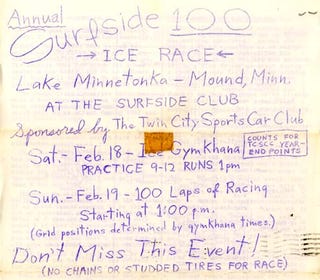 Annual
Surfside 100
→ ICE RACE ←
Lake Minnetonka – Mound, Minn.
AT THE SURFSIDE CLUB
Sponsored by The Twin City Sports Car Club
Sat.- Feb. 18 – Ice Gymkhana
PRACTICE 9-12 RUNS 1pm
COUNTS FOR
TCSCC YEAR-
END POINTS
Sun.- Feb. 19 - 100 Laps of Racing
Starting at 1:00 p.m.
(Grid positions determined by gymkhana times.)
Don't Miss This Event!
(NO CHAINS OR STUDDED TIRES FOR RACE)